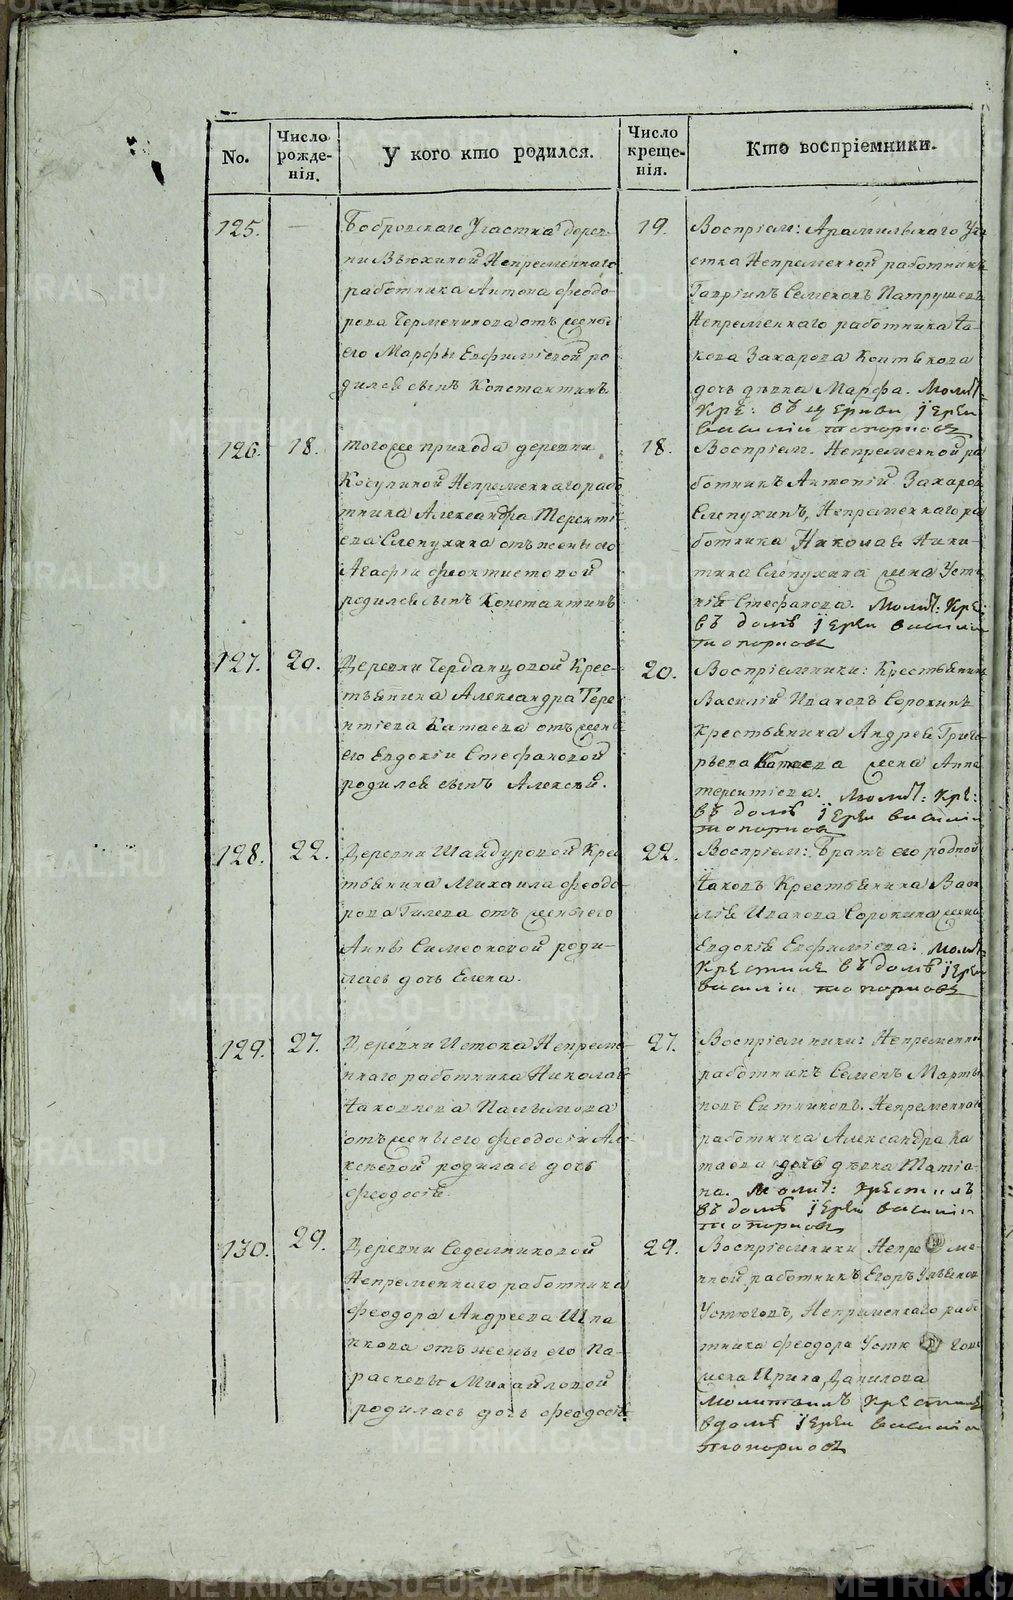 No.
Число рожде-нія.
У кого кто родился.
Число креще-нія.
Кто воспріемники.
125.
—
Бобровскаго Участка дерев-
ни Вьюхиной Непременнаго
работника Антона Феодо-
рова Черменинова отъ жены
его Марфы Евфиміевой ро
дился сынъ Константинъ
19.
Воспріем: Арамильскаго Уча
стка Непременной работникъ
Гавріилъ Семеновъ Патрушевъ
Непременнаго работника Іа-
кова Захарова Коптякова
дочь девка Марфа. Молит:
Кре: въ церкви Іереи
василіи топорковъ
126.
18.
тогоже прихода деревни
Косулиной Непременнаго раб
тника Александра Теренті-
ева Слепухина отъ жены его
Агафіи Феоктистовой
родился сынъ Константинъ
18.
Воспріем. Непременной ра
ботникъ Антоній Захаров
Слепухинъ, Непременнаго ра
ботника Николая Ники-
тина Слепухина жена Усти
нія Стефанова. Молит: Кре:
въ доме Іереи василіи
топорковъ
127.
20.
Деревни Чердынцовой Крес-
тьянина Александра Тере
нтіева Катаева отъ жены
его Евдокіи Стефановой
родился сынъ Алексей.
20.
Воспріемники: Крестьянинъ
Василій Ивановъ Сорокинъ
Крестьянина Андрея Григо-
рьева Катаева жена Анна
терентіева. молит: Кре:
въ доме Іереи василіи
топорков
128.
22.
Деревни Шайдуровой Кре
стьянина Михаила Феодо-
рова Гилева отъ жены его
Анны Симеоновой роди-
лась дочь Елена.
22.
Воспріем: Братъ его родной
Іаковъ Крестьянина Васи
лія Иванова Сорокина жена
Евдокія Евфиміева: молит:
Крестилъ въ доме Іереи
василіи топорковъ
129.
27.
Деревни Истока Непреме-
ннаго работника Николая
Іаковлева Палымова
отъ жены его Феодосіи Але-
ксѣевой родилась дочь
Феодосія.
27.
Воспріемники: Непременно
работникъ Семенъ Марты
новъ Ситниковъ. Непременнаго
работника Александра Ка
таева дочь девка Татія-
на. Молит: крестилъ
въ доме Іереи василіи
топорковъ
130.
29.
Деревни Седельниковой
Непременнаго работника
Феодора Андреева Шпа
никова отъ жены его Па-
раскевы Михайловой
родилась дочь Феодосія
29.
Воспріемники Непре ме-
нной работникъ Егоръ
Устюговъ, Непременнаго рабо
тника Феодора Устю гова
жена Ирина Данилова
молитвилъ Крестилъ
вдоме Іереи василіи
топорковъ
METRIKI.GASO-URAL.RU